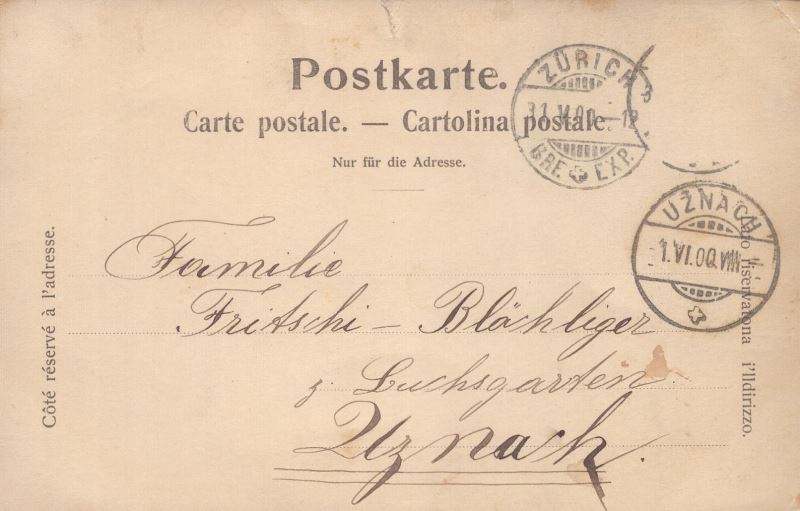 Postkarte.
Carte postale. — Cartolina postale.
Nur für die Adresse.
ZÜRICH
31.V.00.-12
BRF. EXP.
UZNACH
1.VI.00.VIII
Côté réservé à l'adresse.
Lato riservatona i'lldirizzo.
Familie
Fritschi - Blöchliger
z. Luchsgarten
Uznach.